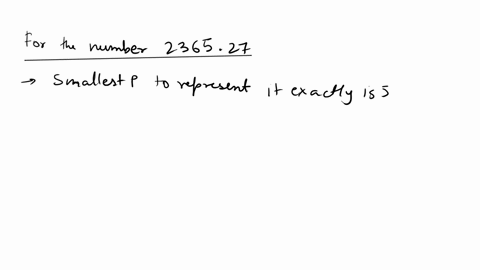 For the number 2365.27
→ Smallest P to represent it exactly is 5